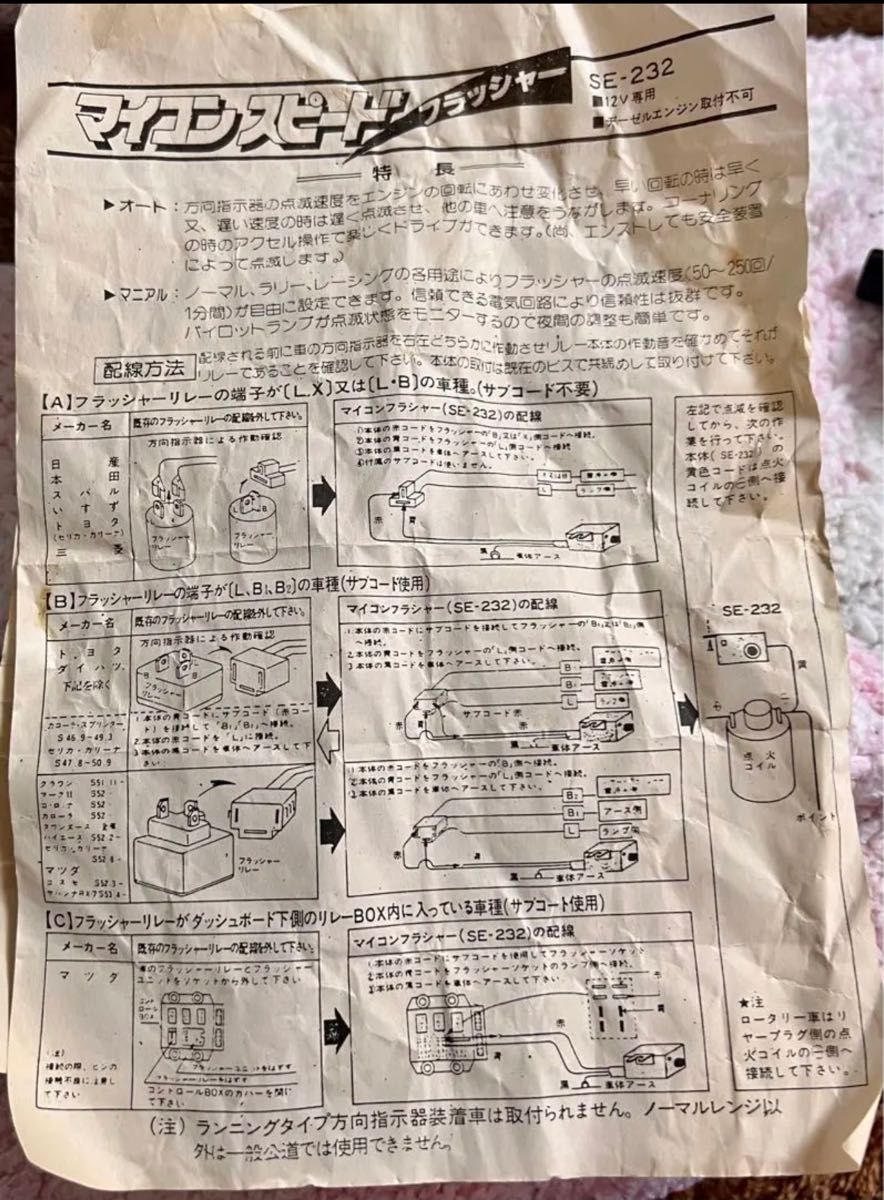 マイコンスピードフラッシャー
SE-232
■12V専用
■ヂーゼルエンジン取付不可
特長
▶オート：方向指示器の点滅速度をエンジンの回転にあわせ変化させ、早い回転の時は早く
又、遅い速度の時は遅く点滅させ、他の車へ注意をうながします。コーナリング
の時のアクセル操作で楽しくドライブができます。(尚、エンストしても安全装置
によって点滅します。)
▶マニアル：ノーマル、ラリー、レーシングの各用途によりフラッシャーの点滅速度(50〜250回/
1分間)が自由に設定できます。信頼できる電気回路により信頼性は抜群です。
パイロットランプが点滅状態をモニターするので夜間の調整も簡単です。
配線方法
配線される前に車の方向指示器を右左どちらかに作動させリレー本体の作動音を確かめてそれが
リレーであることを確認して下さい。本体の取付は既存のビスで共締めして取り付けて下さい。
【A】フラッシャーリレーの端子が〔L.X〕又は〔L・B〕の車種。(サブコード不要)
メーカー名
日産
本田
スバル
いすず
トヨタ
(セリカ・カリーナ)
三菱
既存のフラッシャーリレーの配線を外して下さい。
方向指示器による作動確認
フラッシャー
リレー
フラッシャー
リレー
マイコンフラシャー(SE-232)の配線
①本体の赤コードをフラッシャーの「B」又は「X」側コードへ接続。
②本体の青コードをフラッシャーの「L」側コードへ接続
③本体の黒コードを車体へアースして下さい。
④付属のサブコードは使いません。
L
赤
青
黒
車体アース
左記で点滅を確認
してから、次の作
業を行って下さい。
本体(SE-232)の
黄色コードは点火
コイルの⊖側へ接
続して下さい。
【B】フラッシャーリレーの端子が〔L、B₁、B₂〕の車種(サブコード使用)
メーカー名
トヨタ
ダイハツ
下記を除く
カローラ・スプリンター
S46.9-49.3
セリカ・カリーナ
S47.8-50.9
既存のフラッシャーリレーの配線を外して下さい。
方向指示器による作動確認
フラッシャー
リレー
1.本体の青コードにサブコード(赤コー
ド)を接続して「B₂」「B₁」へ接続。
2.本体の赤コードを「L」に接続。
3.本体の黒コードを車体へアースして下さ
い。
マイコンフラシャー(SE-232)の配線
1.本体の赤コードにサブコードを接続してフラッシャーの「B₁」又は「B₂」側
へ接続。
2.本体の青コードをフラッシャーの「L」側コードへ接続。
3.本体の黒コードを車体へアースして下さい。
L
赤
サブコード赤
黒
車体アース
SE-232
黄
⊕
⊖
点火
コイル
ポイント
クラウン S51.11-
マークII S52.-
コ・ロ・ナ S52.-
カローラ S52.-
タウンエース 全車
ハイエース S52.2-
セリカ・カリーナ
S52.8-
マツダ
コスモ S52.3-
サバンナRX-7 S53.4-
フラッシャー
リレー
1.本体の赤コードをフラッシャーの「B」側へ接続。
2.本体の青コードをフラッシャーの「L」側コードへ接続。
3.本体の黒コードを車体へアースして下さい。
B₂
B₁
アース側
L
ランプ側
赤
青
黒
車体アース
【C】フラッシャーリレーがダッシュボード下側のリレーBOX内に入っている車種(サブコート使用)
メーカー名
マツダ
(注)
接続の際、ピンの
接触不良に注意し
て下さい
既存のフラッシャーリレーの配線を外して下さい。
車のフラッシャーリレーとフラッシャー
ユニットをソケットから外して下さい
コント
ロール
BOX
フラッシャーユニットをはずす
フラッシャーリレーをはずす
コントロールBOXのカバーを開い
て下さい。
マイコンフラシャー(SE-232)の配線
1.本体の赤コードにサブコードを使用してフラッシャーソケット
2.本体の青コードをフラッシャーソケットのランプ側へ接続。
3.本体の黒コードを車体へアースして下さい。
赤
赤
青
青
黒
車体アース
★注
ロータリー車はリ
ヤープラグ側の点
火コイルの⊖側へ
接続して下さい。
(注)ランニングタイプ方向指示器装着車は取付られません。ノーマルレンジ以
外は一般公道では使用できません。